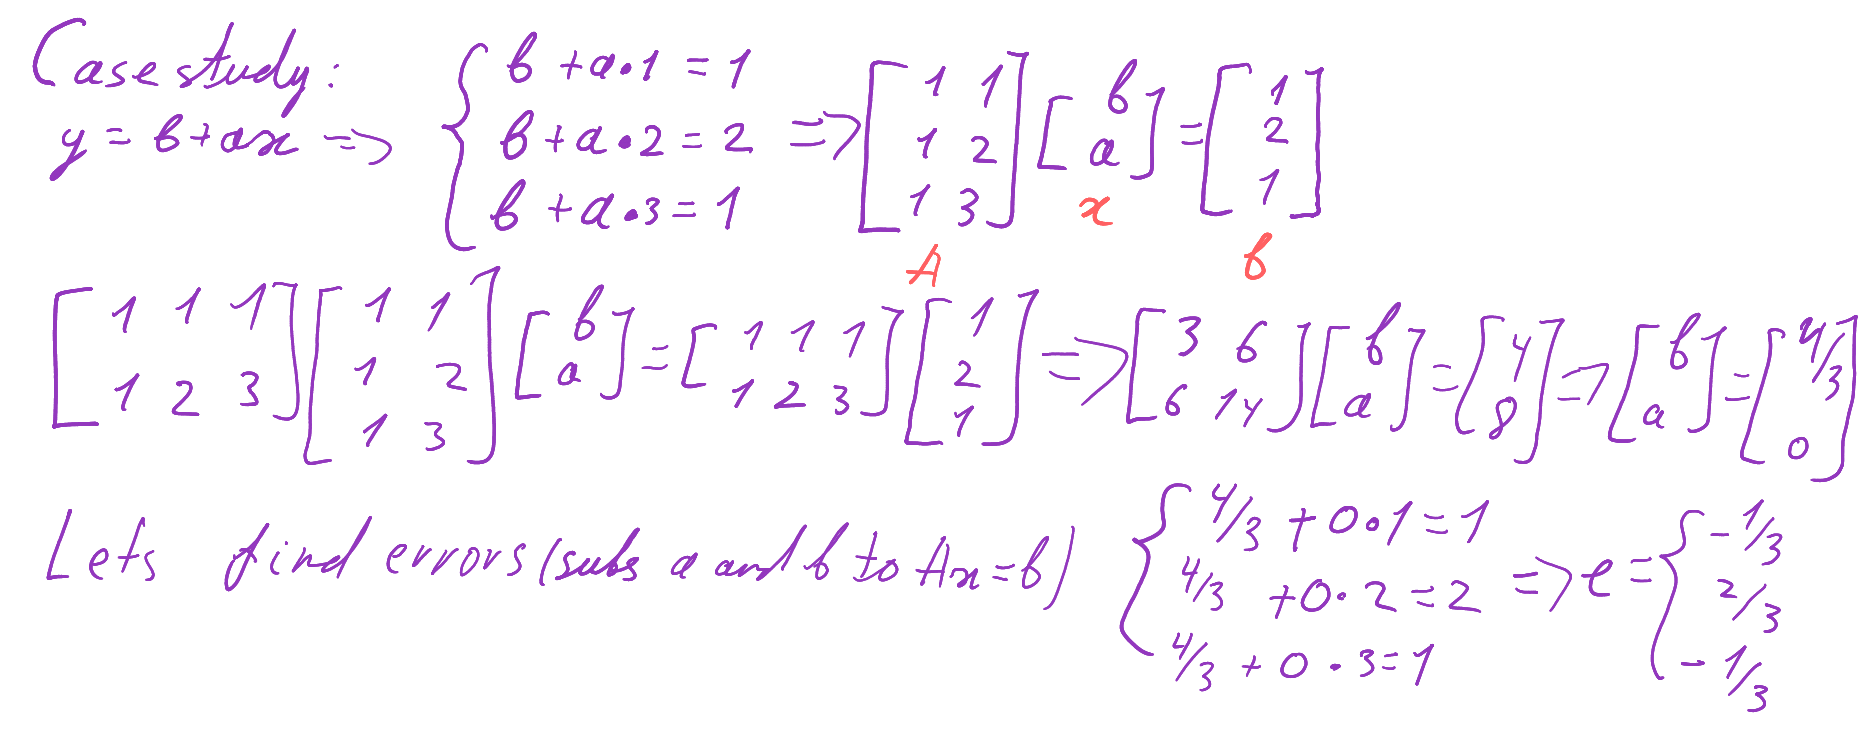 Case study:
y = b + ax => { b + a·1 = 1
b + a·2 = 2
b + a·3 = 1 => [ 1 1
1 2
1 3 ] [ b
a ] = [ 1
2
1 ]
A x b
[ 1 1 1
1 2 3 ] [ 1 1
1 2
1 3 ] [ b
a ] = [ 1 1 1
1 2 3 ] [ 1
2
1 ] => [ 3 6
6 14 ] [ b
a ] = [ 4
8 ] => [ b
a ] = [ 4/3
0 ]
Lets find errors (subs a and b to Ax=b) { 4/3 + 0·1 = 1
4/3 + 0·2 = 2
4/3 + 0·3 = 1 => e = { -1/3
2/3
-1/3